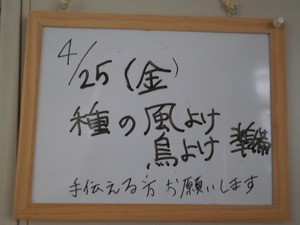 4/25(金)
種の風よけ
鳥よけ 準備
手伝える方お願いします